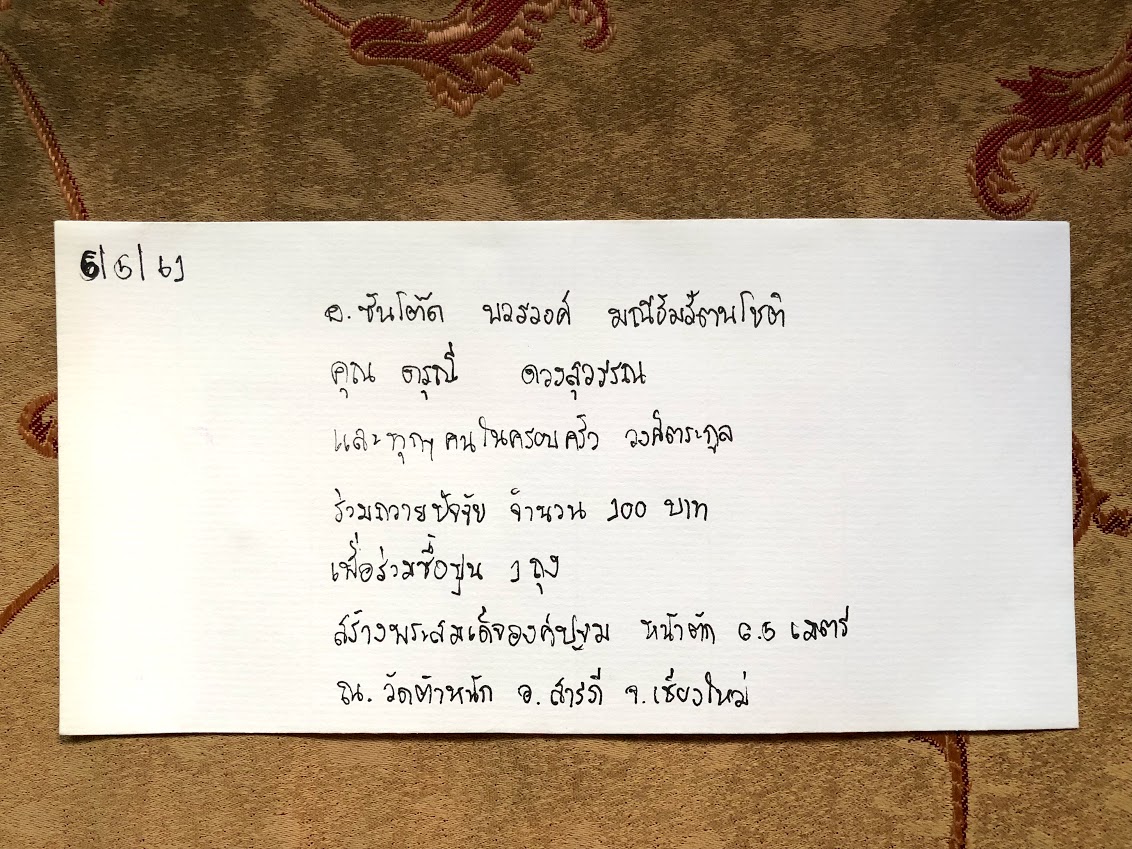 6/5/61
อ.ซันโต๊ด บวรวงศ์ มณีธัมรัตานโชติ
คุณ ดรุณี ดวงสุวรรณ
และทุกๆ คนในครอบครัว วงศ์ตระกูล
ร่วมถวายปัจจัย จำนวน 100 บาท
เพื่อร่วมซื้อปูน 1 ถุง
สร้างพระสมเด็จองค์ปฐม หน้าตัก 6.5 เมตร
ณ. วัดตำหนัก อ.สารภี จ.เชียงใหม่